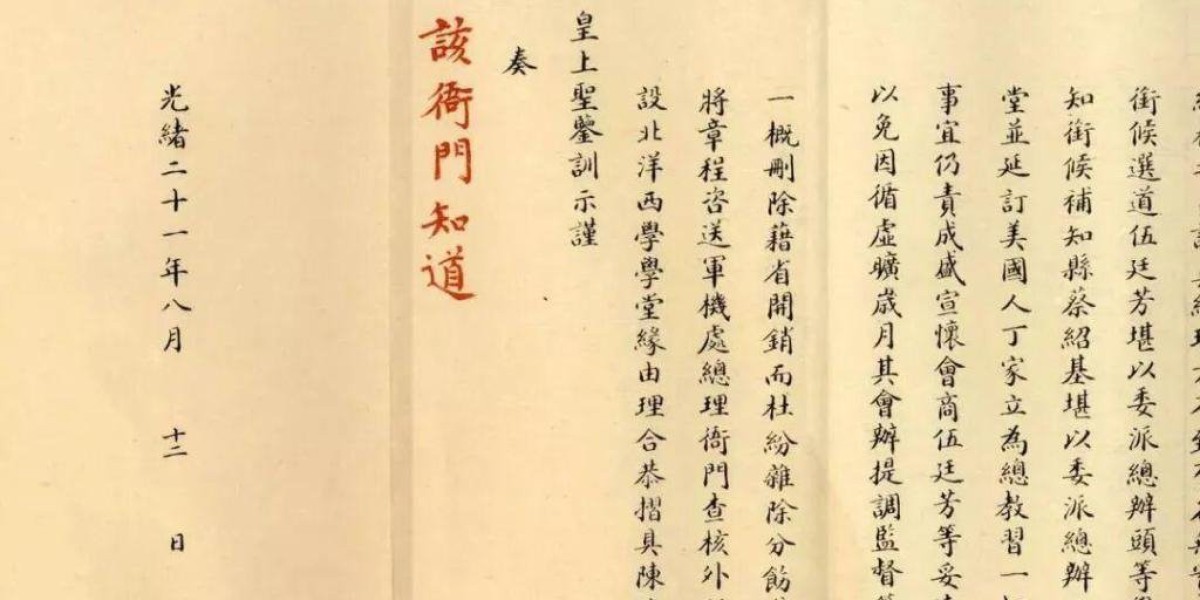 銜候選道伍廷芳堪以委派總辦頭等
知銜候補知縣蔡紹基堪以委派總辦
堂並延訂美國人丁家立為總教習一
事宜仍責成盛宣懷會商伍廷芳等妥
以免因循虛曠歲月其會辦提調監督
一概刪除藉省開銷而杜紛雜除分飭
將章程咨送軍機處總理衙門查核外
設北洋西學學堂緣由理合恭摺具陳
皇上聖鑒訓示謹
奏
該衙門知道
光緒二十一年八月 十二 日